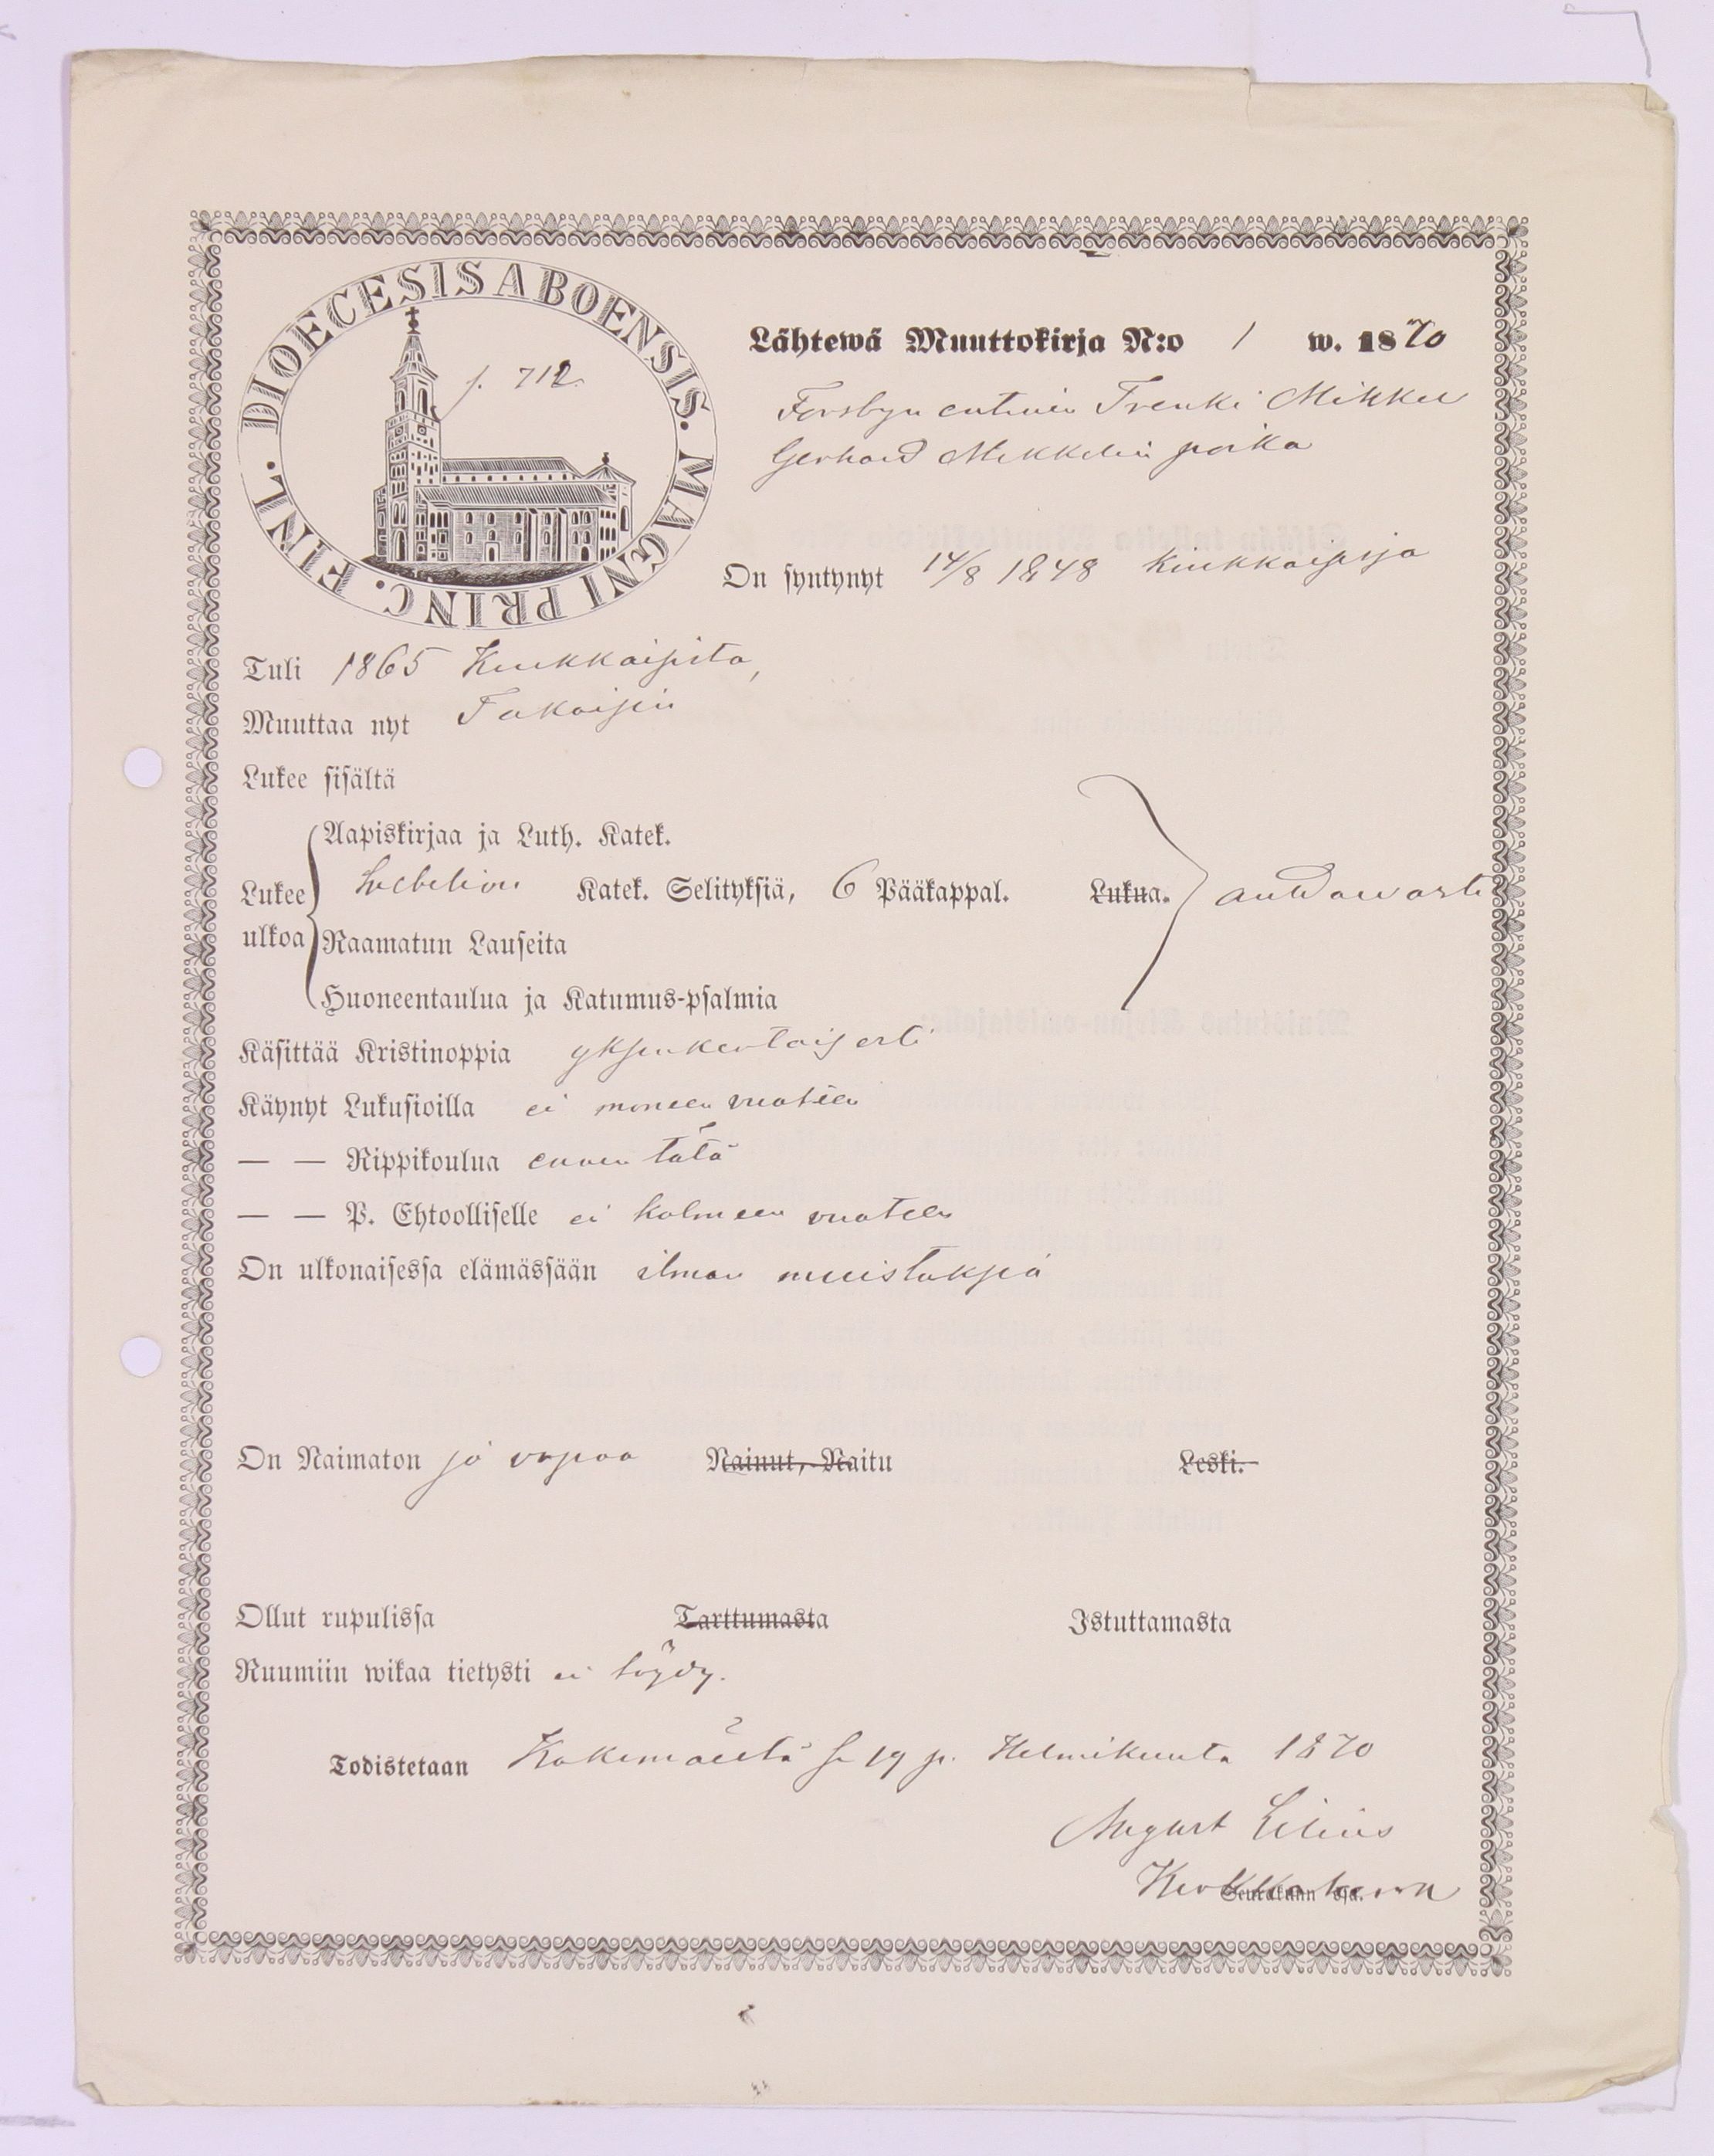 DIOECESIS ABOENSIS. MAGNI PRINC. FINL.
f. 712.
Lähtewä Muuttokirja N:o 1 w. 1870
Forsbyn entinen Trenki Mikkel
Gerhard Mikkelin poika
On syntynyt 14/8 1848
Tuli 1865
Muuttaa nyt
Lukee sisältä
Aapiskirjaa ja Luth. Katek.
Lukee ulkoa Katek. Selityksiä, 6 Pääkappal. Lukua. auttawasti
Raamatun Lauseita
Huoneentaulua ja Katumus-psalmia
Käsittää Kristinoppia yksinkertaisesti
Käynyt Lukusioilla ei moneen vuoteen
— — Rippikoulua ennen tätä
— — P. Ehtoolliselle ei kolmeen vuoteen
On ulkonaisessa elämässään ilman muistuksia
On Naimaton ja vapaa Nainut, Naitu Leski.
Ollut rupulissa Tarttumasta Istuttamasta
Ruumiin wikaa tietysti ei löydy.
Todistetaan Kokemäeltä se 19 p. Helmikuuta 1870
August Lilius
Kirkkoherra